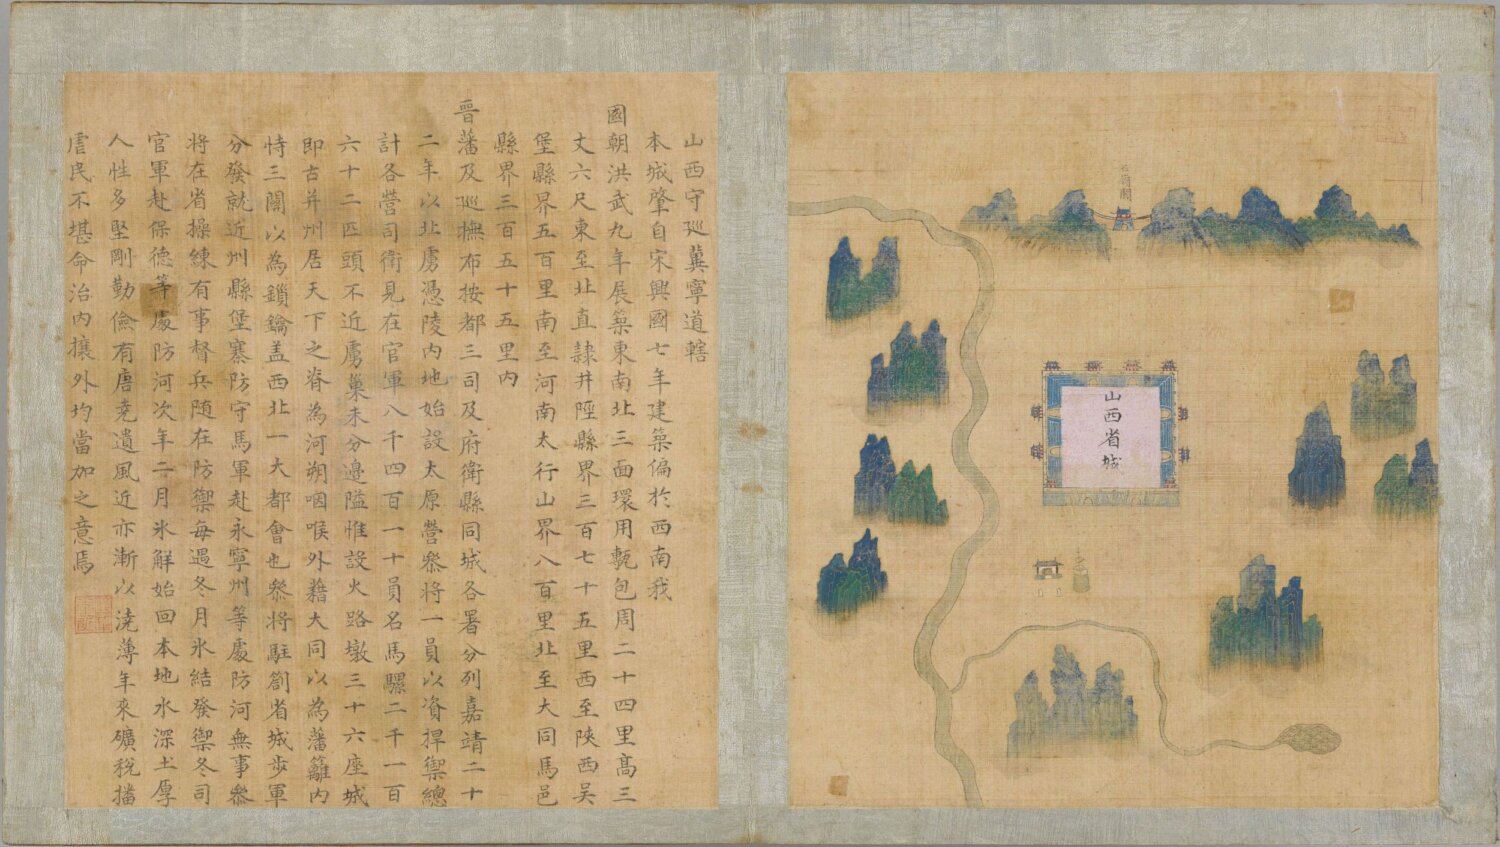 山西守廵冀寧道轄
本城肇自宋興國七年建築偏於西南我
國朝洪武九年展築東南北三面環用甎包周二十四里髙三
丈六尺東至北直隷井陘縣界三百七十五里西至陝西吳
堡縣界五百里南至河南太行山界八百里北至大同馬邑
縣界三百五十五里內
晉藩及廵撫布按都三司及府衛縣同城各署分列嘉靖二十
二年以北虜憑陵內地始設太原營叅將一員以資捍禦總
計各營司衛見在官軍八千四百一十員名馬騾二千一百
六十二匹頭不近虜巢未分邉隘惟設火路墩三十六座城
即古并州居天下之脊為河朔咽喉外藉大同以為藩籬內
恃三關以為鎖鑰盖西北一大都會也叅將駐劄省城步軍
分發就近州縣堡寨防守馬軍赴永寧州等處防河無事叅
將在省操練有事督兵随在防禦每遇冬月氷結發禦冬司
官軍赴保德等處防河次年二月氷解始回本地水深土厚
人性多堅剛勤儉有唐堯遺風近亦漸以澆薄年來礦稅播
虐民不堪命治內攘外均當加之意焉
山西省城